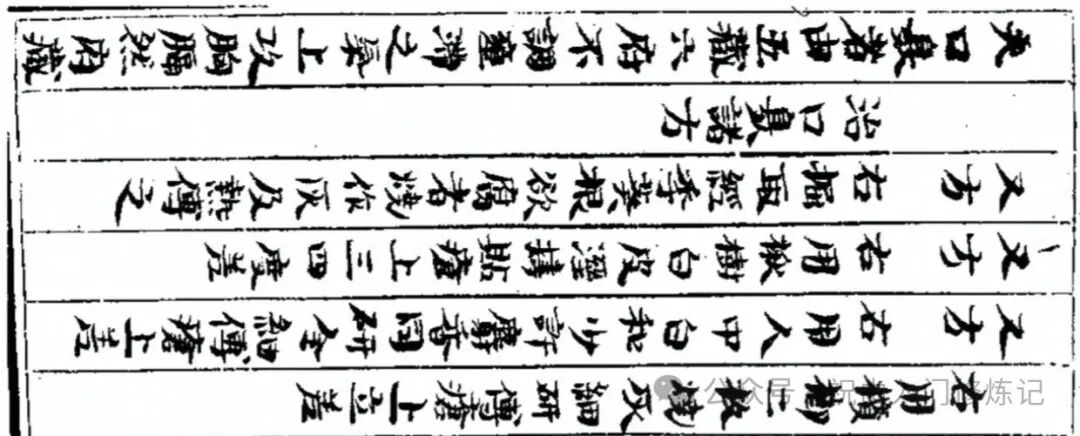 右用檳榔二枚燒灰細研傅瘡上立差
又方 右用人中白和少許麝香同研令細傅瘡上差
又方 右用楸樹白皮濕搗貼瘡上三四度差
又方 右掘取經季葵根欲腐者燒作灰及熱傅之
治口臭諸方
夫口臭者由五藏六府不調壅滯之氣上攻胸膈然内藏
公众号 门修炼记